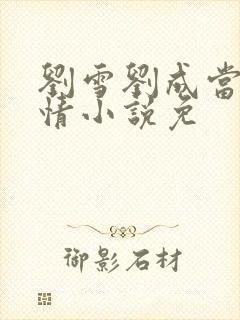 劉雪劉成當
情小說免
御影石材